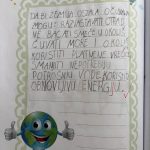 DA BI ZEMLJA OSTALA OČUVANA
MOGU DA RAZVRSTAVATE OTPAD
NE BACATI SMEĆE U OKOLIŠ
ČUVATI MORE I OBALU
KORISTITI PLATNENE VREĆE
SMANJITI NEPOTREBNU
POTROŠNJU VODE KORISTITI
OBNOVLJIVU ENERGIJU.